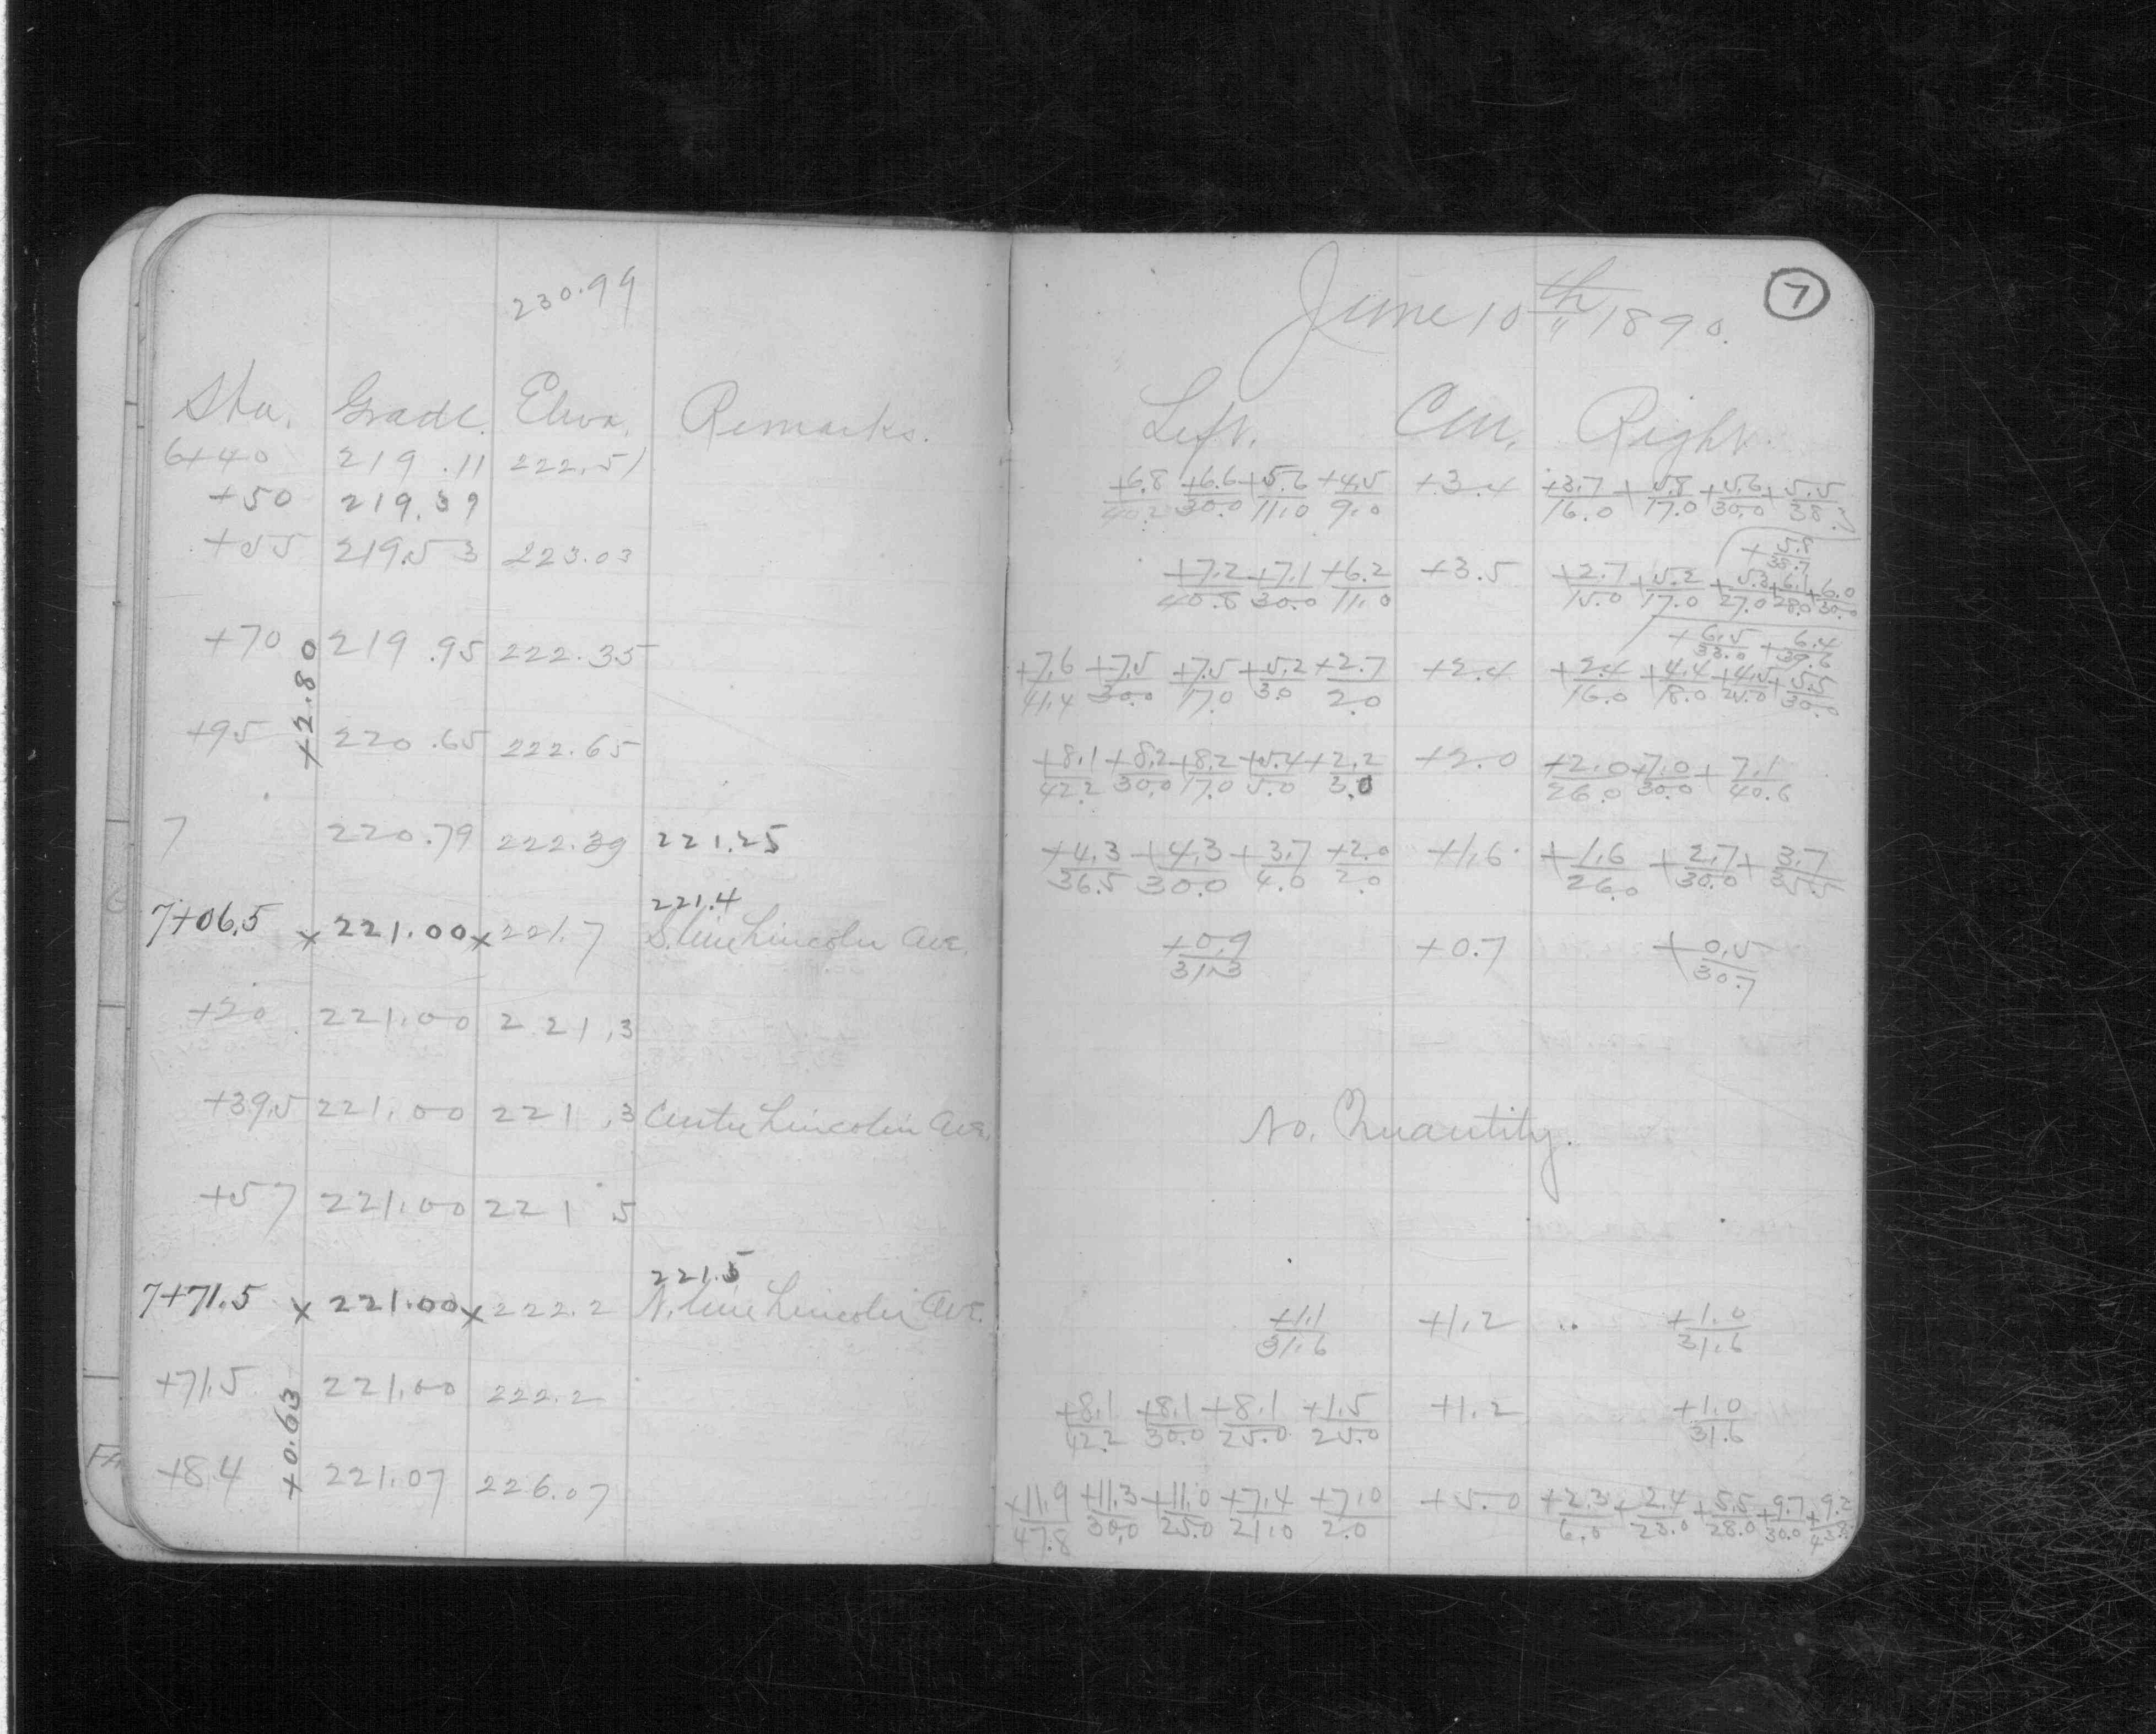 230.99
Sta. Grade. Eleva. Remarks.
6+40 219.11 222.51
+50 219.39
+55 219.53 223.03
+70 219.95 222.35
+2.80
+95 220.65 222.65
7 220.79 222.39 221.25
221.4
7+06.5 x 221.00 x 221.7 S. line Lincoln Ave.
+20 221.00 221.3
+39.5 221.00 221.3 Center Lincoln Ave.
+57 221.00 221 5
221.5
7+71.5 x 221.00 x 222.2 N. line Lincoln Ave.
+71.5 221.00 222.2
+0.63
+84 221.07 226.07
7
June 10th 1890.
Left. Cen. Right.
+6.8 +6.6 +5.6 +4.5 +3.4 +3.7 + 5.8 +5.6 + 5.5
40.2 30.0 11.0 9.0 16.0 17.0 30.0 38.
+ 5.8
38.7
+7.2 +7.1 +6.2 +3.5 +2.7 +5.2 +5.3 +6.1 +6.0
40.8 30.0 11.0 15.0 17.0 27.0 28.0 30.0
+ 6.5 + 6.4
33.0 39.6
+7.6 +7.5 +7.5 +5.2 +2.7 +2.4 +2.4 +4.4 +4.5 +5.5
41.4 30.0 17.0 3.0 2.0 16.0 18.0 25.0 30.0
+8.1 +8.2 +8.2 +5.4 +2.2 +2.0 +2.0 +7.0 + 7.1
42.2 30.0 17.0 5.0 3.0 26.0 30.0 40.6
+4.3 +4.3 + 3.7 +2.0 +1.6 +1.6 + 2.7 + 3.7
36.5 30.0 4.0 2.0 26.0 30.0 35.5
+0.9 +0.7 +0.5
31.3 30.7
No. Quantity.
+1.1 +1.2 .. +1.0
31.6 31.6
+8.1 +8.1 +8.1 +1.5 +1.2 +1.0
42.2 30.0 25.0 25.0 31.6
+11.9 +11.3 +11.0 +7.4 +7.0 +5.0 +2.3 + 2.4 + 5.5 +9.7 +9.2
47.8 30.0 25.0 21.0 2.0 6.0 23.0 28.0 30.0 43.8